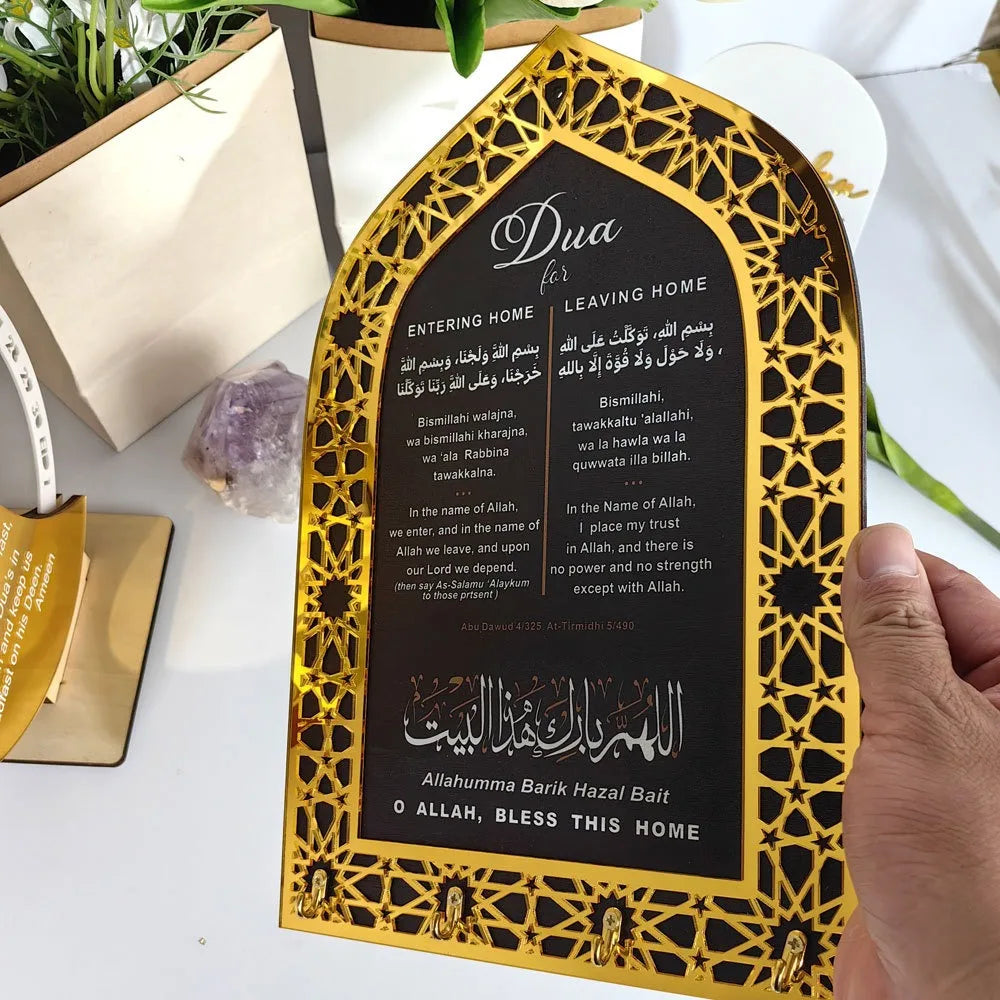 Dua
for
ENTERING HOME
بِسْمِ اللهِ وَلَجْنَا، وَبِسْمِ اللهِ
خَرَجْنَا، وَعَلَى اللهِ رَبِّنَا تَوَكَّلْنَا
Bismillahi walajna,
wa bismillahi kharajna,
wa 'ala Rabbina
tawakkalna.
In the name of Allah,
we enter, and in the name of
Allah we leave, and upon
our Lord we depend.
(then say As-Salamu 'Alaykum
to those prtsent )
LEAVING HOME
بِسْمِ اللهِ، تَوَكَّلْتُ عَلَى اللهِ
، وَلَا حَوْلَ وَلَا قُوَّةَ إِلَّا بِاللهِ
Bismillahi,
tawakkaltu 'alallahi,
wa la hawla wa la
quwwata illa billah.
In the Name of Allah,
I place my trust
in Allah, and there is
no power and no strength
except with Allah.
Abu Dawud 4/325 At-Tirmidhi 5/490
اللهُمَّ بَارِكْ هٰذَا البَيْتَ
Allahumma Barik Hazal Bait
O ALLAH, BLESS THIS HOME
Dua's in
and keep us
on his Deen.
Ameen